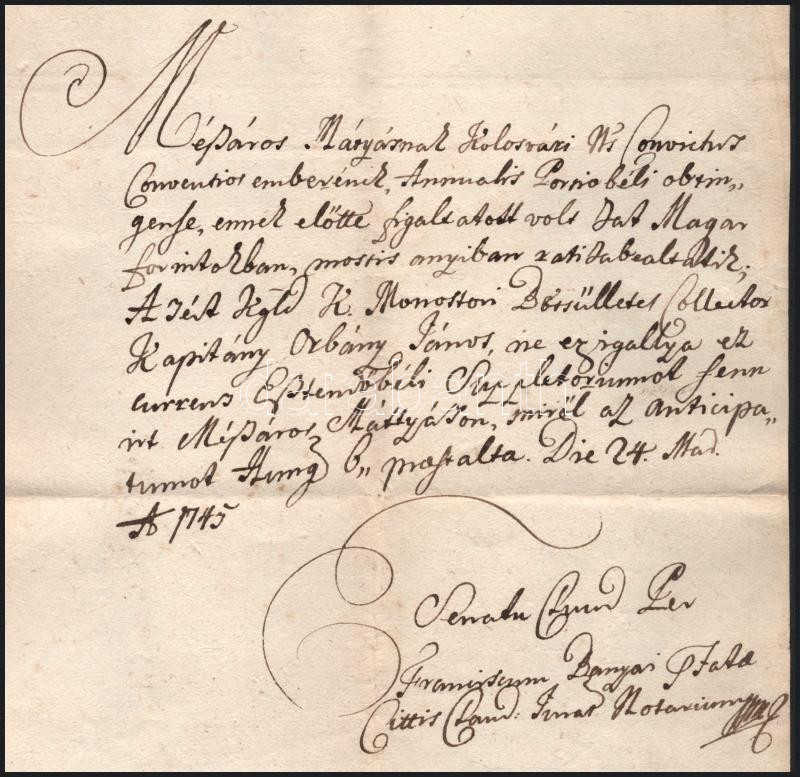 Mészáros Mátyásnak Kolosvári Ns Convictus
Conventios emberének, Annualis Portiobéli obtin„
gense, ennek előtte figaltatott volt hat Magar
forintokban, mostis anyiban ratihabealtatik;
A Kgld K. Monostori Collector
Kapitány Orbány János, ne exigallya ez
currens Esztendőbéli Suppletoriumot fenn
irt Mészáros Máttyáson, mivel az anticipa„
tumot Hung 6„ præstalta. Die 24. Mad.
Ao 1745
Senatu Claud Per
Franciscum Banyai Ptatæ
Cittis Claud: Jurat Notarium